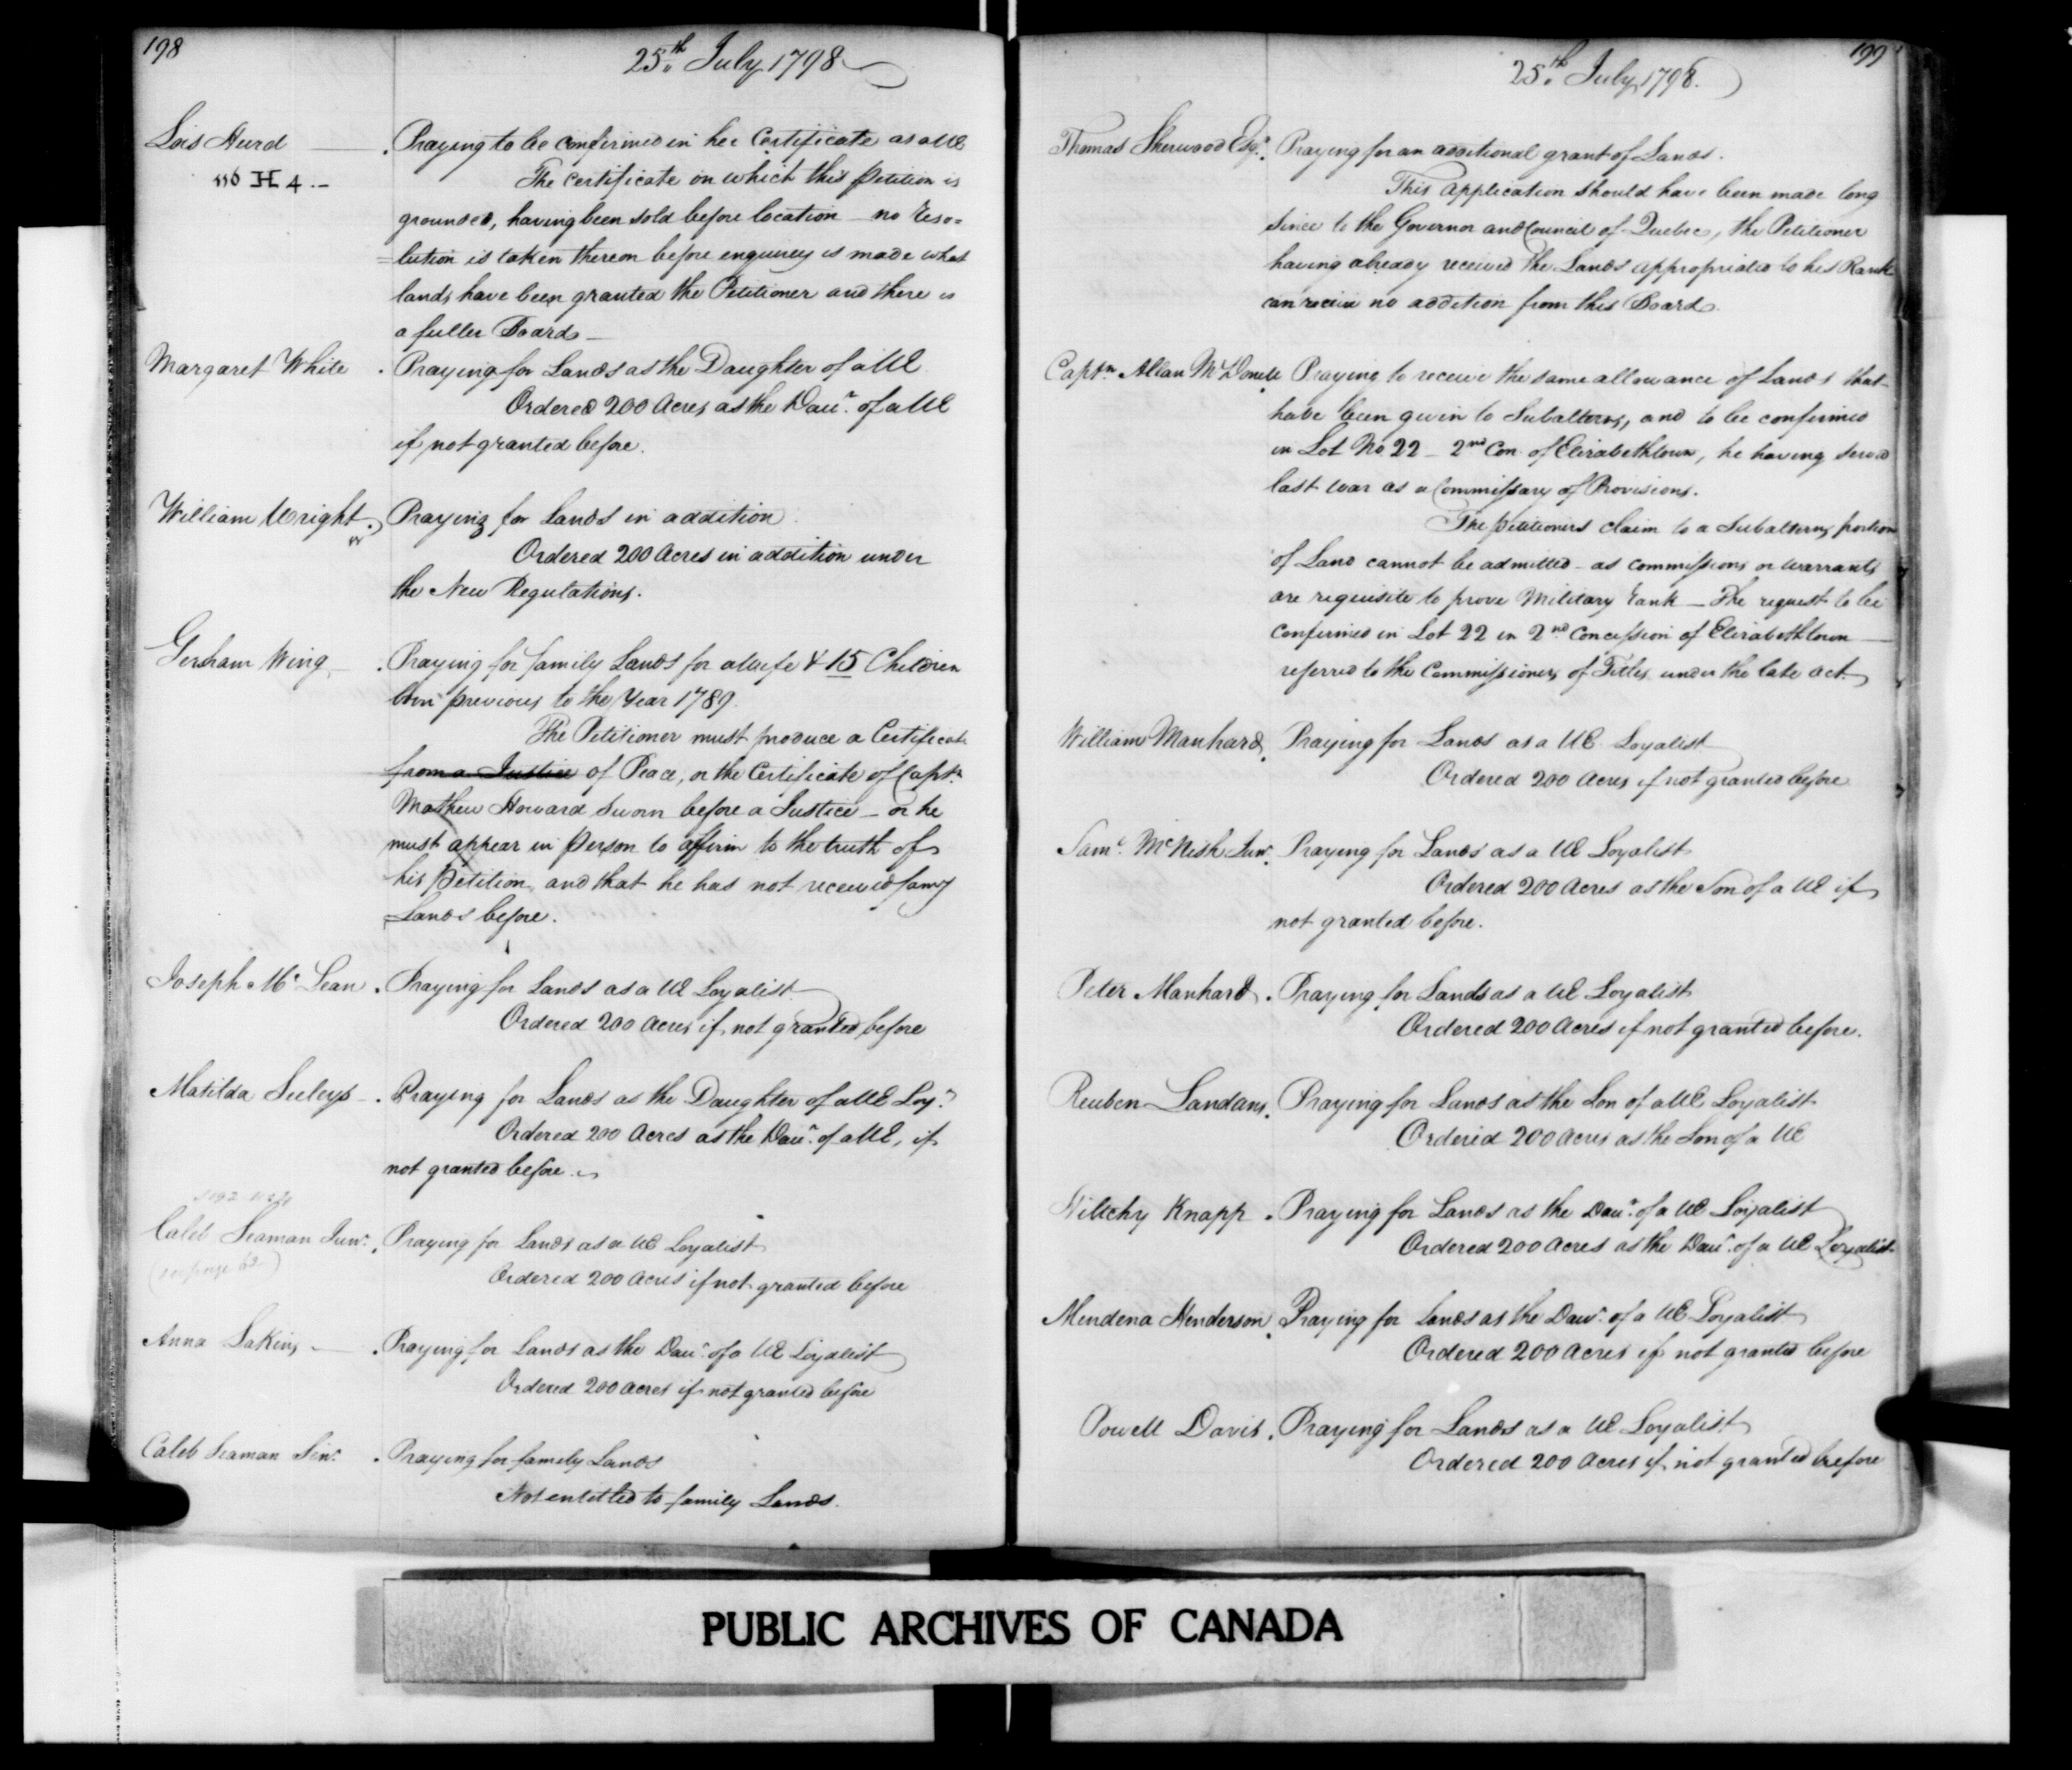 198
25th July 1798
Lois Hurd . Praying to be confirmed in her Certificate as a UE
H 4 .- The Certificate on which this petition is
grounded, having been sold before location - no reso=
=lution is taken thereon before enquirey is made what
lands have been granted the Petitioner and there is
a fuller Board -
Margaret White . Praying for Lands as the Daughter of a UE
Ordered 200 Acres as the Daur. of a UE
if not granted before.
William Wright . Praying for Lands in addition
Ordered 200 Acres in addition under
the New Regulations.
Gersham Wing - . Praying for family Lands for a Wife & 15 Children
born previous to the Year 1789.
The Petitioner must produce a Certificate
from a Justice of Peace, or the Certificate of Captn.
Mathew Howard sworn before a Justice - or he
must appear in person to affirm to the truth of
his petition, and that he has not received famy
Lands before.
Joseph Mc Lean . Praying for Lands as a UE Loyalist
Ordered 200 Acres if not granted before
Matilda Seelys - . Praying for Lands as the Daughter of a UE Loy.
Ordered 200 Acres as the Daur. of a UE, if
not granted before.
Caleb Seaman Junr. . Praying for Lands as a UE Loyalist
(see page 63)
Ordered 200 Acres if not granted before
Anna Lakins - . Praying for Lands as the Daur. of a UE Loyalist
Ordered 200 Acres if not granted before
Caleb Seaman Senr. . Praying for family Lands
Not entitled to family Lands.
199
25th July 1798.
Thomas Sherwood Esqr. . Praying for an additional grant of Lands.
This application should have been made long
since to the Governor and Council of Quebec, the Petitioner
having already received the Lands appropriated to his Rank
can receive no addition from this Board.
Captn. Allan McDonell Praying to receive the same allowance of Lands that
have been given to Subalterns, and to be confirmed
in Lot No 22 - 2nd Con. of Elizabethtown, he having served
last war as a Commissary of Provisions.
The petitioners claim to a Subalterns portion
of Land cannot be admitted - as commissions or warrants
are requisite to prove Military rank - The request to be
confirmed in Lot 22 in 2nd Concession of Elizabethtown -
referred to the Commissioners of Titles under the late act.
William Manhard . Praying for Lands as a UE Loyalist
Ordered 200 Acres if not granted before
Saml. McNish Junr. . Praying for Lands as a UE Loyalist
Ordered 200 Acres as the Son of a UE if
not granted before.
Peter Manhard . Praying for Lands as a UE Loyalist
Ordered 200 Acres if not granted before.
Reuben Landans . Praying for Lands as the Son of a UE Loyalist
Ordered 200 Acres as the Son of a UE
Knapp . Praying for Lands as the Daur. of a UE Loyalist
Ordered 200 Acres as the Daur. of a UE Loyalist
Mendena Henderson . Praying for Lands as the Daur. of a UE Loyalist
Ordered 200 Acres if not granted before
Powell Davis . Praying for Lands as a UE Loyalist
Ordered 200 Acres if not granted before
PUBLIC ARCHIVES OF CANADA